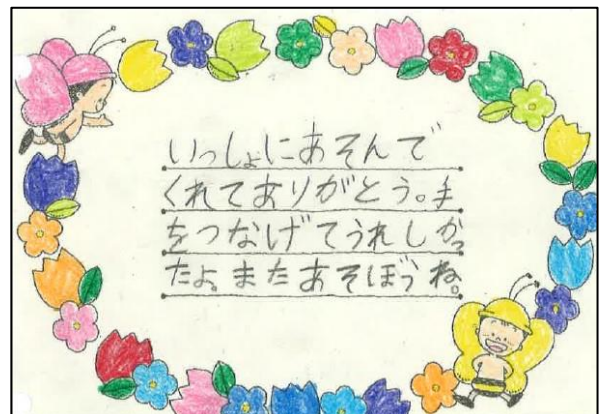 いっしょにあそんで
くれてありがとう。手
をつなげてうれしかっ
たよ。またあそぼうね。